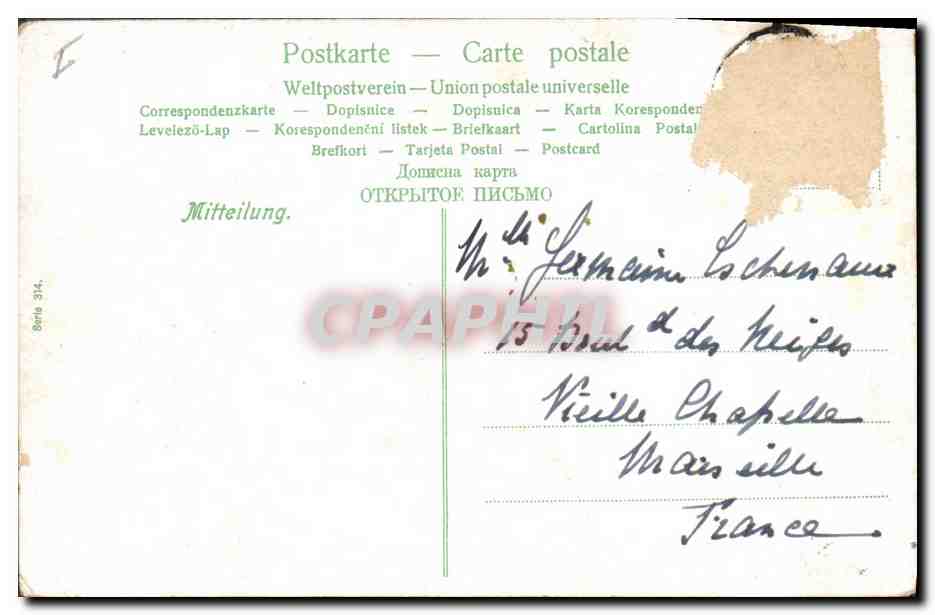 Postkarte — Carte postale
Weltpostverein — Union postale universelle
Correspondenzkarte — Dopisnice — Dopisnica — Karta Koresponden
Levelező-Lap — Korespondenční lístek — Briefkaart — Cartolina Postal
Brefkort — Tarjeta Postal — Postcard
Дописна карта
ОТКРЫТОЕ ПИСЬМО
Mitteilung.
Serie 314.
CPAPHIL
Mlle Germaine
15 Boul d des Neiges
Vieille Chapelle
Marseille
France.